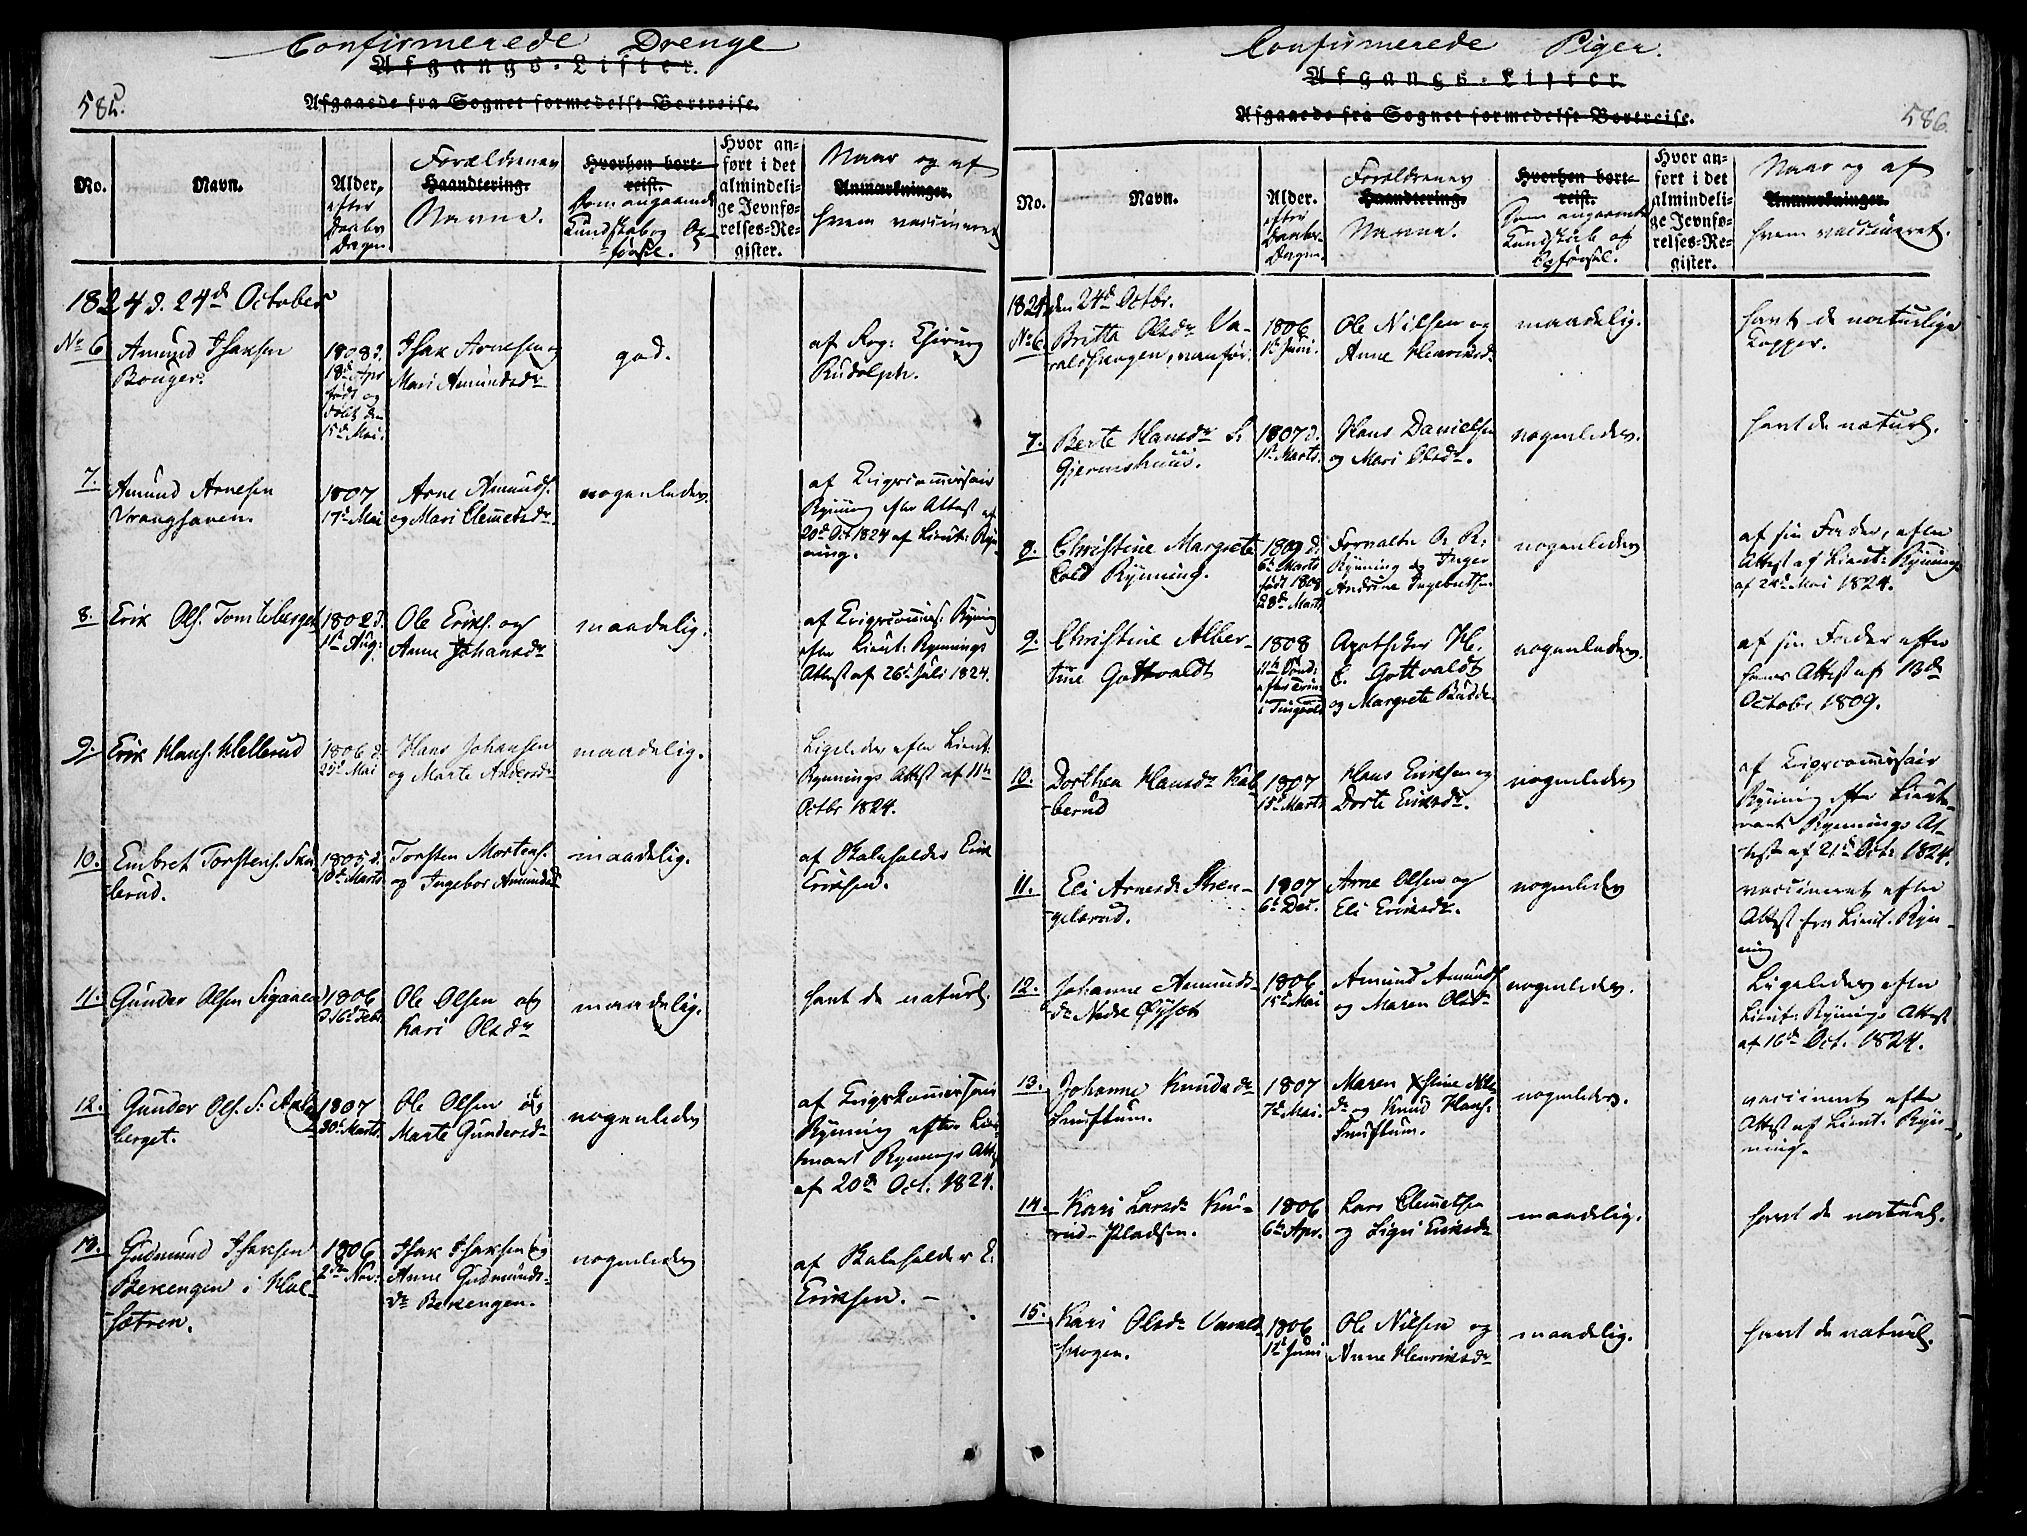 Confirmerede Drenge
Afgangs-Lister.
585.
Afgaaede fra Sognet formedelst Bortreise.
No.
Navn.
Alder,
efter
Daabs
Dagen
Forældrenes
Haandtering.
Navne.
Hvorhen bort-
reist.
Dom angaaende
Kundskab og Op-
førsel.
Hvor an-
ført i det
almindeli-
ge Jevnfø-
relses-Re-
gister.
Naar og af
Anmærkninger.
hvem vaccineret
1824 d. 24d October
No 6
Amund Isaksen
Bonger.
1808 d.
18d Apr
født og
døbt den
15d Mai.
Isak Arnesen og
Mari Amundsdr
god.
af Reg: Chirurg
Rudolph.
7.
Amund Arnesen
Vranghaven.
1807
17d Mai
Arne Amunds.
og Mari Clemetsdr.
nogenledes.
af Krigscommissair
Rynning efter Attest af
20d Oct 1824 af Lieut: Ryn-
ning.
8.
Erik Ols. Tomteberget
1802 d.
1t Aug:
Ole Eriks. og
Anne Johansdr
maadelig.
af Krigscommis. Rynning
efter Lieut: Rynnings
Attest af 26d Juli 1824.
9.
Erik Hans. Hellerud
1806 d.
25d Mai
Hans Johansen
og Marte Andersdr
maadelig.
Ligeledes efter Lieut:
Rynnings Attest af 11te
Octbr 1824.
10.
Embret Torstens. Skin-
berud.
1805 d.
10d Marts
Torsten Mortens.
og Ingebor Amundsd
maadelig.
af Kaleholder Erik
Eriksen.
11.
Gunder Olsen Sigaaen
1806
d. 16d Febr
Ole Olsen og
Kari Olsdr
maadelig.
havt de naturl.
12.
Gunder Ols. S:
berget.
1807
30d Marts
Ole Olsen og
Marte Gundersdr
nogenledes
af Krigskommissair
Rynning efter Lieu-
tnant Rynnings Att.
af 20d Oct. 1824.
13.
Gudmund Isaksen
Berengen i Kal-
sætren.
1806
2den Nov:
Isak Isaksen og
Anne Gudmunds-
dr Berengen.
nogenledes
af Kaleholder E.
Eriksen. –
Confirmerede Piger.
Afgangs-Lister.
Afgaaede fra Sognet formedelst Bortreise.
586.
No.
Navn.
Alder.
efter
Daabs-
Dagen.
Forældrenes
Haandtering.
Navne.
Hvorhen bort-
reist.
Dom angaaende
Kundskab og
Opførsel.
Hvor an-
ført i det
almindeli-
ge Jevnfø-
relses-Re-
gister.
Naar og af
Anmærkninger.
hvem vaccineret.
1824 den 24d Octbr.
No 6.
Britta Olsdr Va-
raldskogen, vanfør.
1806
1t Juni.
Ole Nilsen og
Anne Henriksd.
maadelig.
havt de naturlige
Kopper.
7.
Berte Hansdr S:
Gjermshuus.
1807 d.
1t Marts.
Hans Danielsen
og Mari Olsdr.
nogenledes.
havt de naturl.
8.
Christine Margrete
Cold Rynning.
1809 d.
6t Marts
født 1808
28d Marts
Forvalter O. R.
Rynning og Inger
Andrine Ingebretsen
nogenledes
af sin Fader, efter
Attest af Lieut: Rynning
af 24d Mai 1824.
9.
Christine Alber-
tine Gottwaldt
1808
11te Sønd:
efter Trin:
i Tingvold
Apotheker H.
E. Gottvaldt
og Margrete Budde
nogenledes.
af sin Fader efter
hans Attest af 13d
Octobr 1809.
10.
Dorthea Hansdr Kal-
berud
1807
15d Marts
Hans Eriksen og
Dorte Eriksdr.
nogenledes
af Krigscommissair
Rynning efter Lieute-
nant Rynnings At-
test af 21d Oct: 1824.
11.
Eli Arnesdr Stren-
gelsrud.
1807
6te Dec.
Arne Olsen og
Eli Eriksdr.
nogenledes
vaccineret efter
Attest fra Lieut. Ryn-
ning
12.
Johanne Amunds-
dr Nedre Øyset
1806
15d Mai
Amund Amunds
og Maren Olsdr
nogenledes.
Ligeledes efter
Lieut: Rynnings Attest
af 16d Oct. 1824.
13.
Johanne Knudsdr
Snustum.
1807
7d Mai.
Maren Stine Nils
dr og Knud Hans.
Snustum.
nogenledes.
vaccineret efter
Attest af Lieut. Ryn-
ning.
14.
Kari Larsdr Knu-
rud-Pladsen.
1806
6te Apr.
Lars Clemetsen
og Ligri Eriksdr
maadelig.
havt de naturl.
15.
Kari Olsdr Varald-
skogen.
1806
1t Juni
Ole Nilsen og
Anne Henriksdr
maadelig.
havt de naturl.